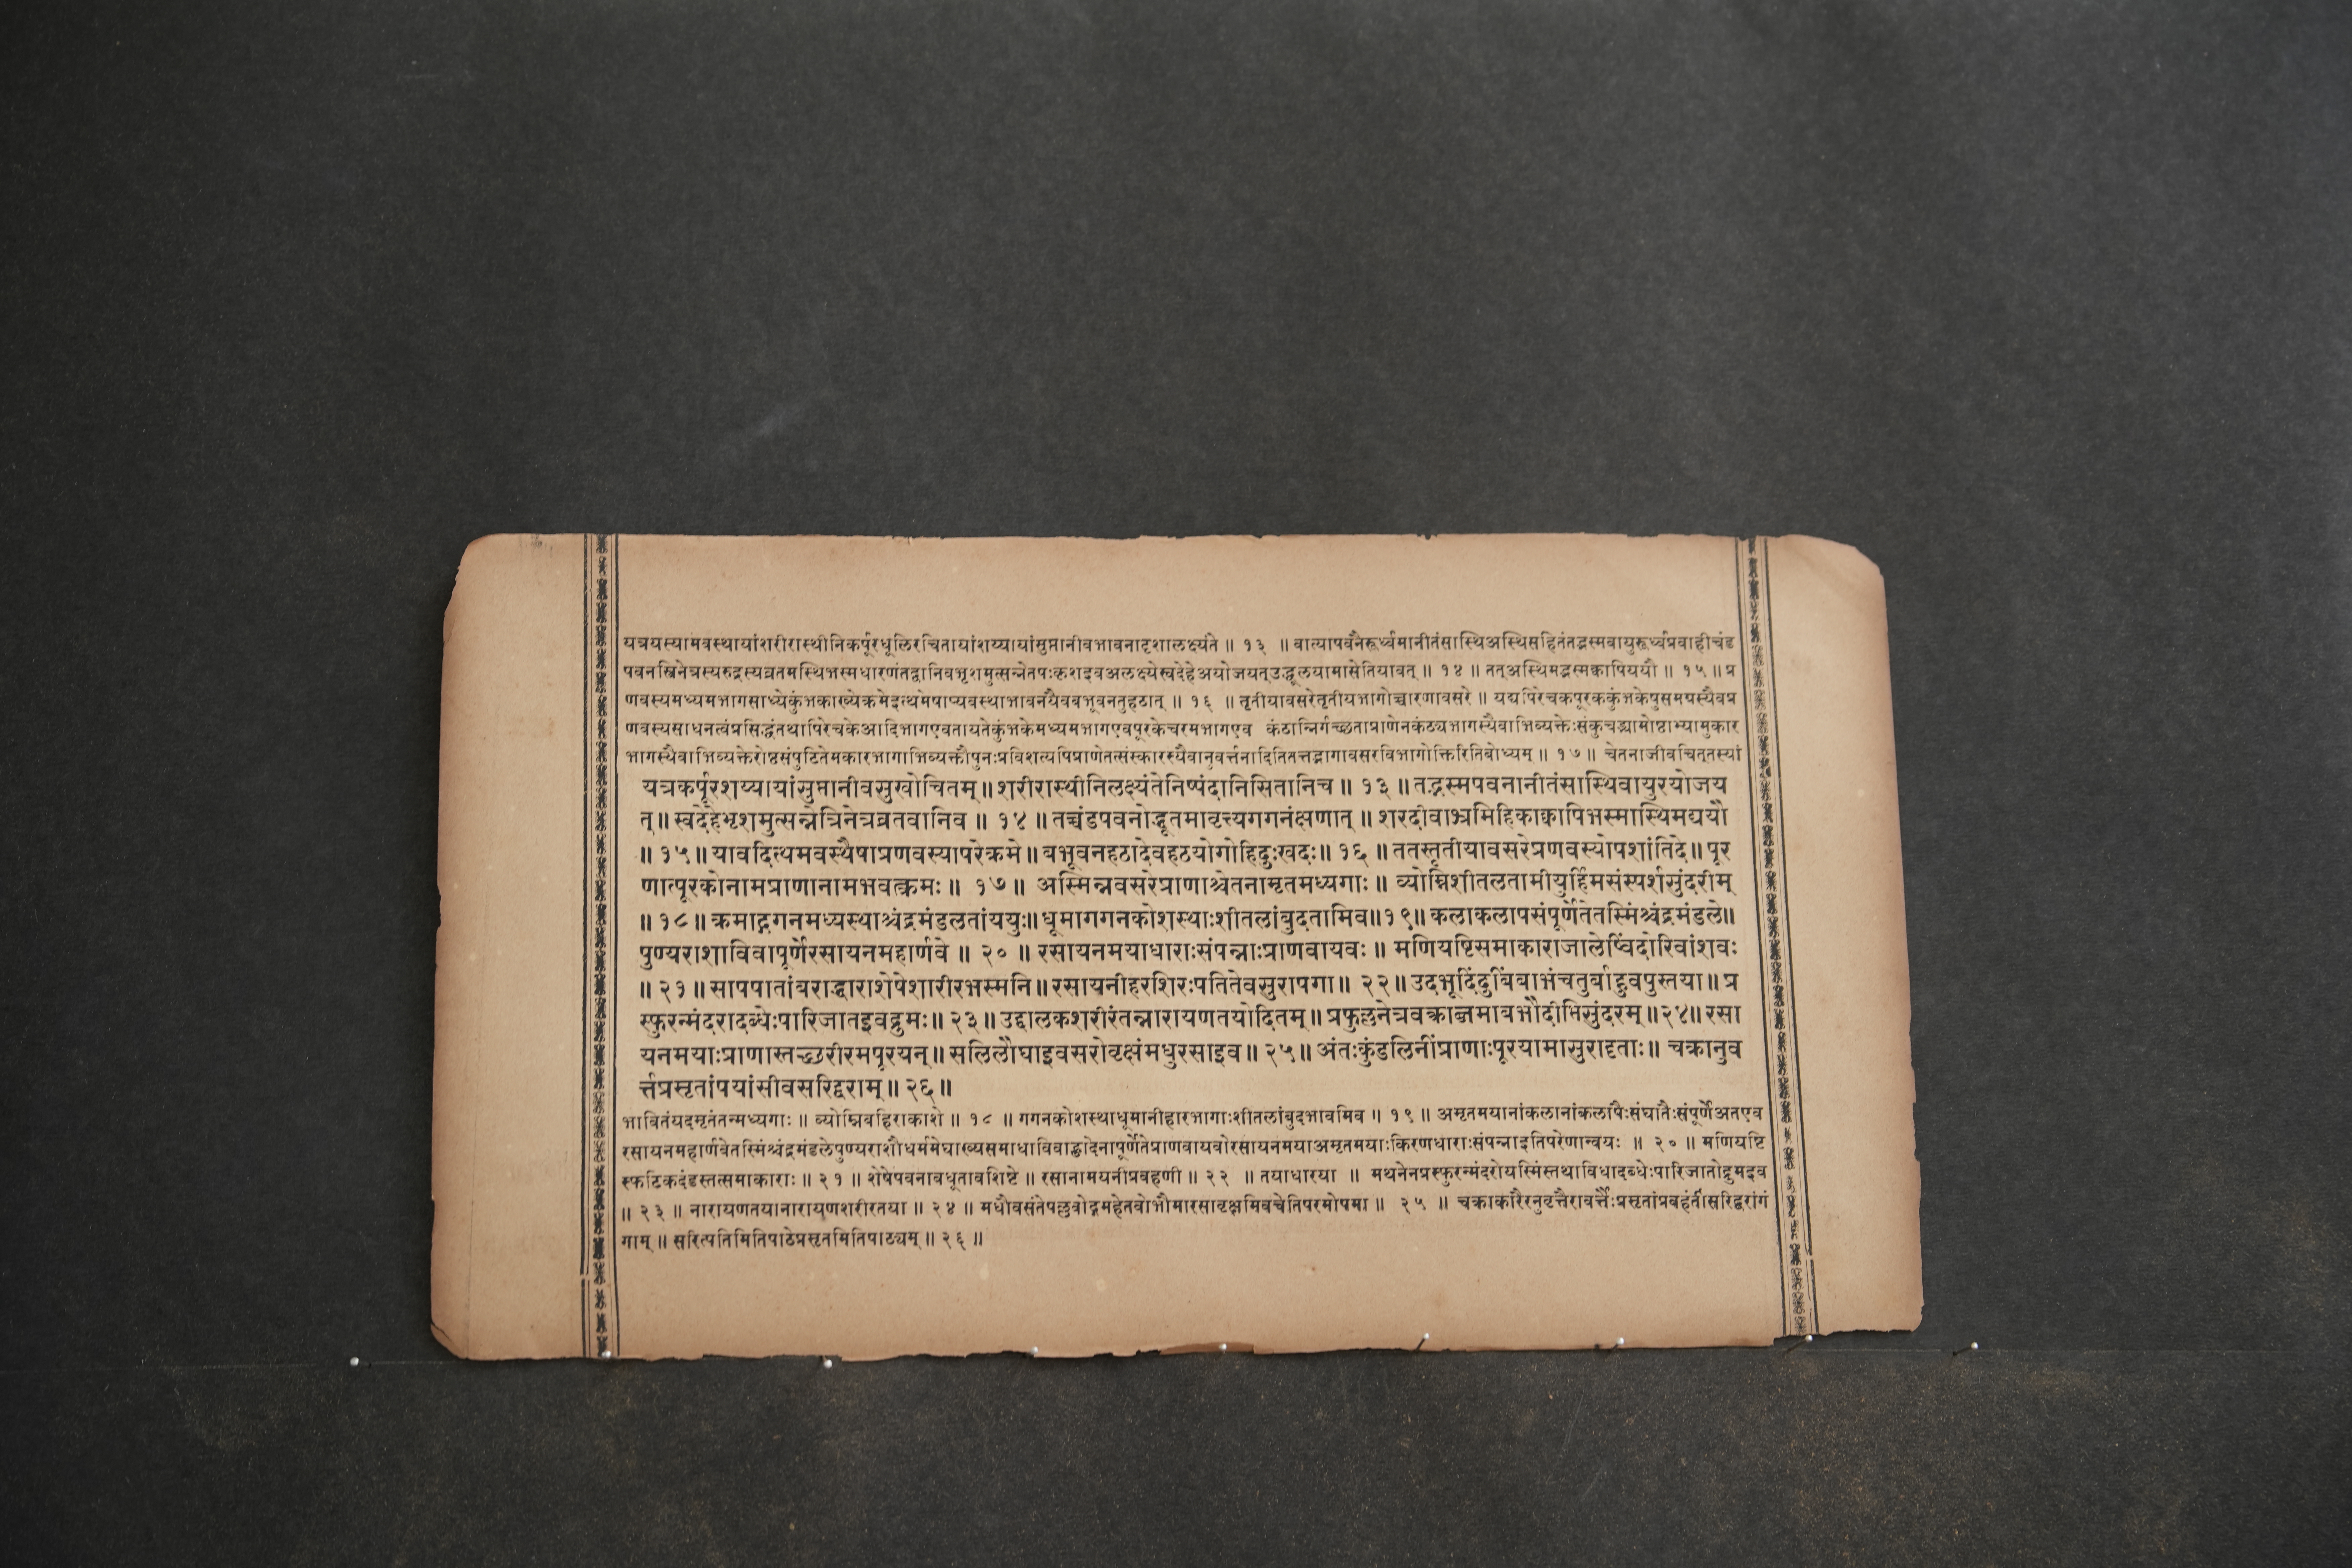 यत्रयस्यामवस्थायांशरीरास्थीनिकर्पूरधूलिरचितायांशय्यायांसुप्तानीवभावनादृशालक्ष्यंते ॥ १३ ॥ वात्यापवनैरूर्ध्वमानीतंसास्थिअस्थिसहितंतद्भस्मवायुरूर्ध्वप्रवाहीचंड
पवनस्त्रिनेत्रस्यरुद्रस्यव्रतमस्थिभस्मधारणंतद्वानिवभृशमुत्सन्नेतपःकृशइवअलक्ष्येस्वदेहेअयोजयत्उद्धूलयामासेतियावत् ॥ १४ ॥ तत्अस्थिमद्भस्मक्वापिययौ ॥ १५ ॥ प्र
णवस्यमध्यमभागसाध्येकुंभकाख्येक्रमेइत्थमेषाप्यवस्थाभावनयैवबभूवनतुहठात् ॥ १६ ॥ तृतीयावसरेतृतीयभागोच्चारणावसरे ॥ यद्यपिरेचकपूरककुंभकेषुसमग्रस्यैवप्र
णवस्यसाधनत्वंप्रसिद्धंतथापिरेचकेआदिभागएवतायतेकुंभकेमध्यमभागएवपूरकेचरमभागएव कंठान्निर्गच्छताप्राणेनकंठ्यभागस्यैवाभिव्यक्तेःसंकुचद्भ्यामोष्ठाभ्यामुकार
भागस्यैवाभिव्यक्तेरोष्ठसंपुटितेमकारभागाभिव्यक्तौपुनःप्रविशत्यपिप्राणेतत्संस्कारस्यैवानुवर्त्तनादितितत्तद्भागावसरविभागोक्तिरितिबोध्यम् ॥ १७ ॥ चेतनाजीवचित्तस्यां
यत्रकर्पूरशय्यायांसुप्तानीवसुखोचितम् ॥ शरीरास्थीनिलक्ष्यंतेनिष्पंदानिसितानिच ॥ १३ ॥ तद्भस्मपवनानीतंसास्थिवायुरयोजय
त् ॥ स्वदेहेभृशमुत्सन्नेत्रिनेत्रव्रतवानिव ॥ १४ ॥ तच्चंडपवनोद्धूतमावृत्त्यगगनंक्षणात् ॥ शरदीवाभ्रमिहिकाक्वापिभस्मास्थिमद्ययौ
॥ १५ ॥ यावदित्थमवस्थैषाप्रणवस्यापरेक्रमे ॥ बभूवनहठादेवहठयोगोहिदुःखदः ॥ १६ ॥ ततस्तृतीयावसरेप्रणवस्योपशांतिदे ॥ पूर
णात्पूरकोनामप्राणानामभवत्क्रमः ॥ १७ ॥ अस्मिन्नवसरेप्राणाश्चेतनामृतमध्यगाः ॥ व्योम्निशीतलतामीयुर्हिमसंस्पर्शसुंदरीम्
॥ १८ ॥ क्रमाद्गगनमध्यस्थाश्चंद्रमंडलतांययुः ॥ धूमागगनकोशस्थाःशीतलांबुदतामिव ॥ १९ ॥ कलाकलापसंपूर्णेतेतस्मिंश्चंद्रमंडले ॥
पुण्यराशाविवापूर्णेरसायनमहार्णवे ॥ २० ॥ रसायनमयाधाराःसंपन्नाःप्राणवायवः ॥ मणियष्टिसमाकाराजालेष्विंदोरिवांशवः
॥ २१ ॥ सापपातांबराद्धाराशेषेशारीरभस्मनि ॥ रसायनीहरशिरःपतितेवसुरापगा ॥ २२ ॥ उदभूदिंदुबिंबाभंचतुर्बाहुवपुस्तया ॥ प्र
स्फुरन्मंदरादब्धेःपारिजातइवद्रुमः ॥ २३ ॥ उद्दालकशरीरंतन्नारायणतयोदितम् ॥ प्रफुल्लनेत्रवक्त्राब्जमाबभौदीप्तिसुंदरम् ॥ २४ ॥ रसा
यनमयाःप्राणास्तच्छरीरमपूरयन् ॥ सलिलौघाइवसरोवृक्षंमधुरसाइव ॥ २५ ॥ अंतःकुंडलिनींप्राणाःपूरयामासुरादृताः ॥ चक्रानुव
र्त्तप्रसृतांपयांसीवसरिद्वराम् ॥ २६ ॥
भावितंयदमृतंतन्मध्यगाः ॥ व्योम्निबहिराकाशे ॥ १८ ॥ गगनकोशस्थाधूमानीहारभागाःशीतलांबुदभावमिव ॥ १९ ॥ अमृतमयानांकलानांकलापैःसंघातैःसंपूर्णेअतएव
रसायनमहार्णवेतस्मिंश्चंद्रमंडलेपुण्यराशौधर्ममेघाख्यसमाधाविवाह्लादेनापूर्णेतेप्राणवायवोरसायनमयाअमृतमयाःकिरणधाराःसंपन्नाइतिपरेणान्वयः ॥ २० ॥ मणियष्टि
स्फटिकदंडस्तत्समाकाराः ॥ २१ ॥ शेषेपवनावधूतावशिष्टे ॥ रसानामयनीप्रवहणी ॥ २२ ॥ तयाधारया ॥ मथनेनप्रस्फुरन्मंदरोयस्मिंस्तथाविधादब्धेःपारिजातोद्रुमइव
॥ २३ ॥ नारायणतयानारायणशरीरतया ॥ २४ ॥ मधौवसंतेपल्लवोद्गमहेतवोभौमारसावृक्षमिवचेतिपरमोपमा ॥ २५ ॥ चक्राकारैरनुवृत्तैरावर्त्तैःप्रसृतांप्रवहंतींसरिद्वरांगं
गाम् ॥ सरित्पतिमितिपाठेप्रसृतमितिपाठ्यम् ॥ २६ ॥